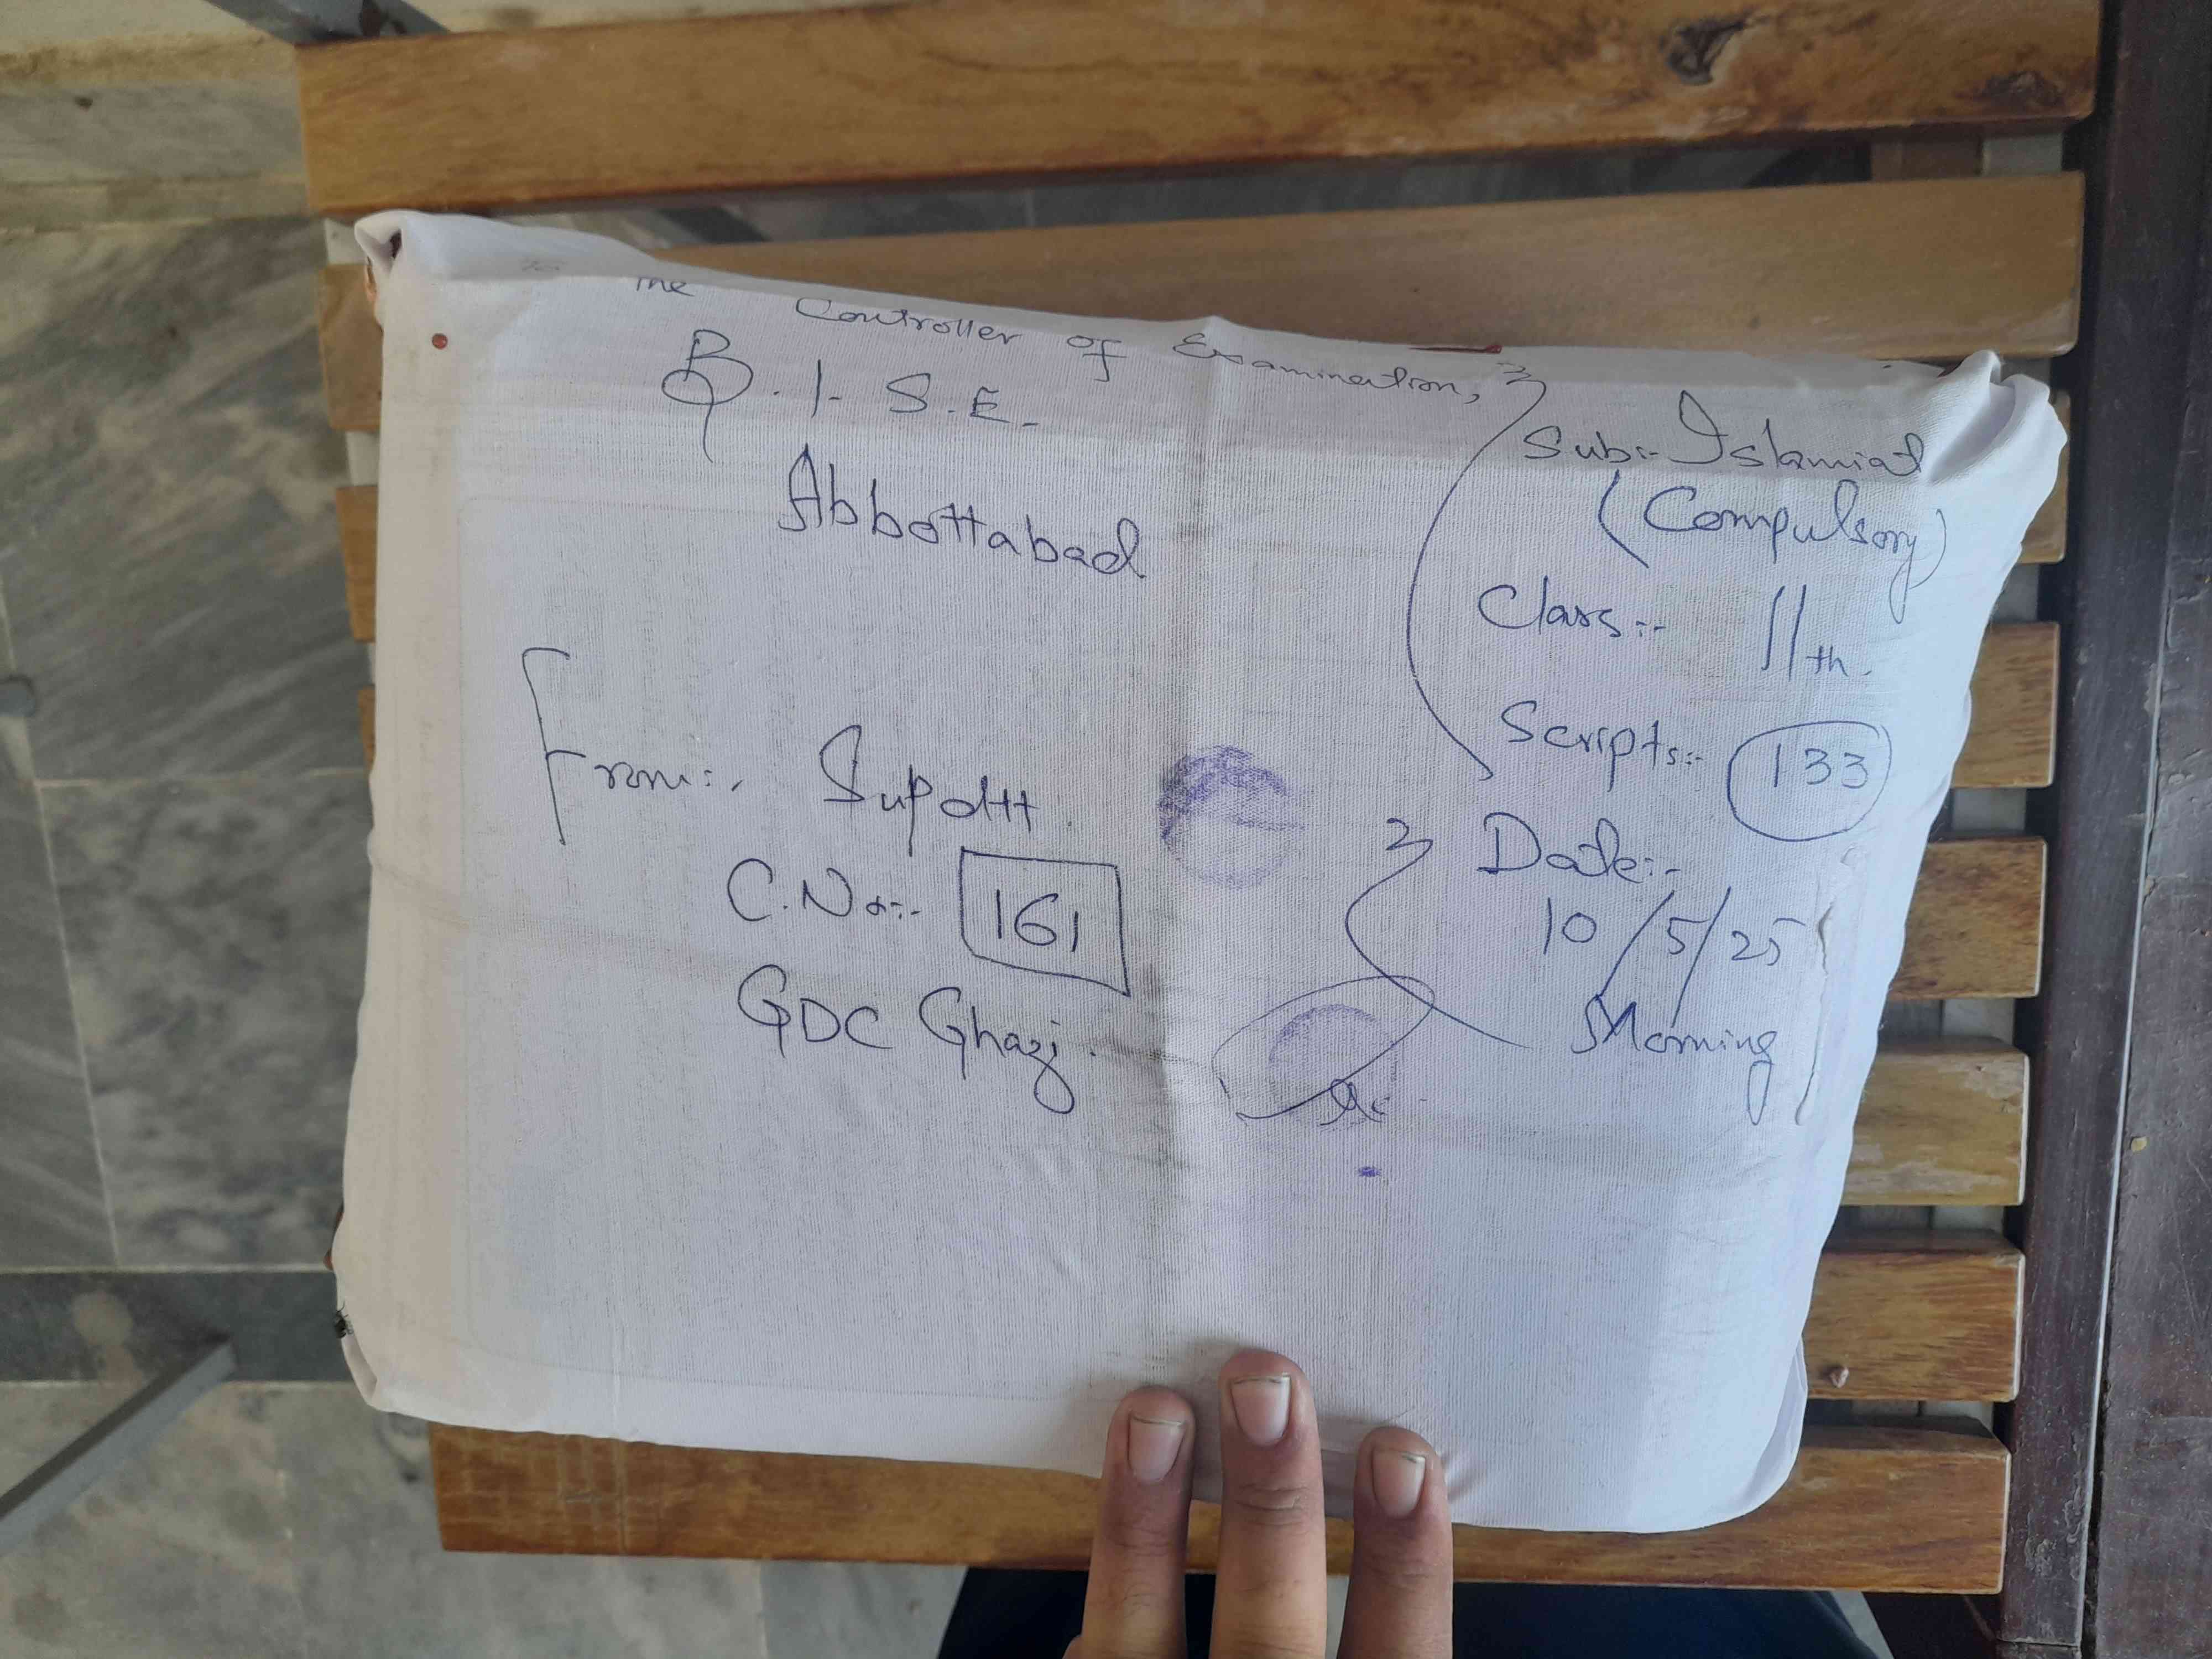 To The Controller of Examination,
B.I.S.E.
Abbottabad
From:- Supdtt.
C.No:- 161
GDC Ghazi.
Sub:- Islamiat
(Compulsory)
Class:- 11th.
Scripts:- 133
Date:-
10/5/25
Morning